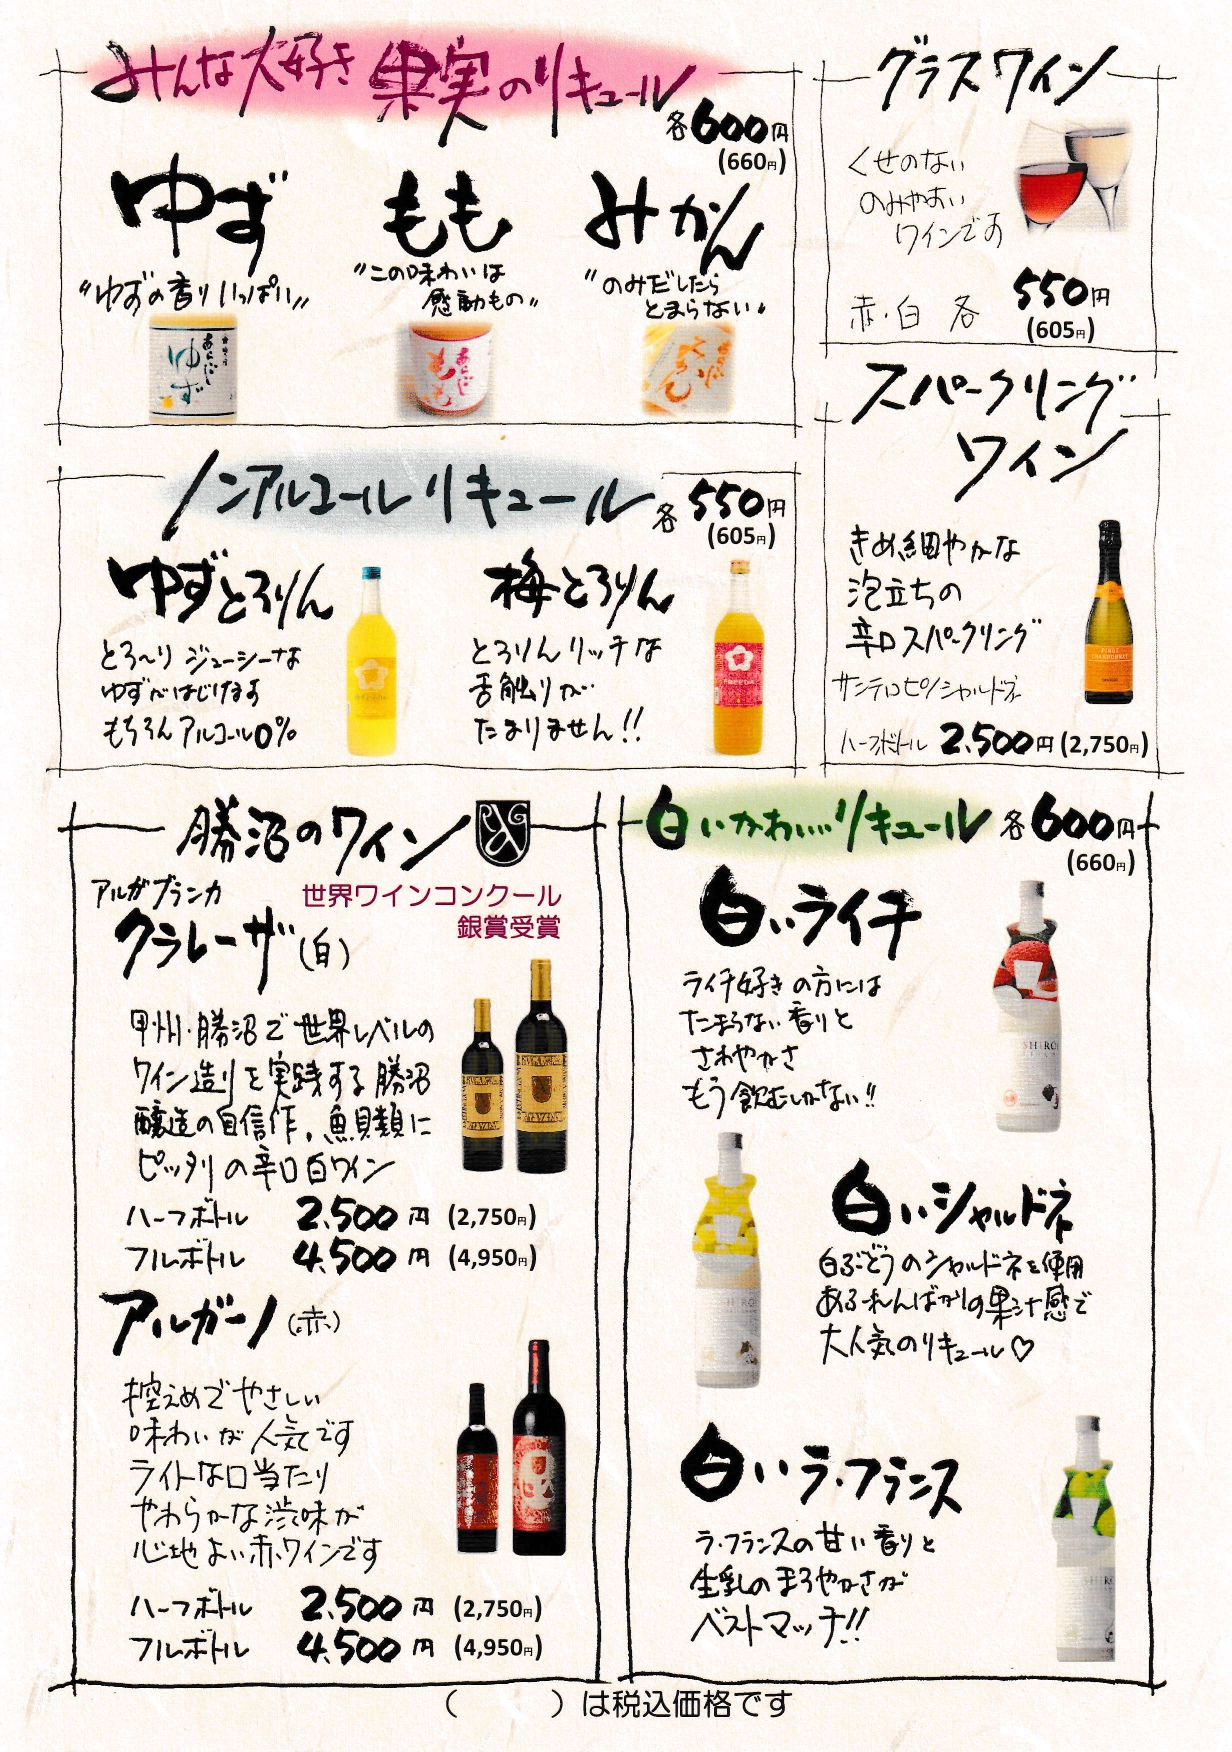 みんな大好き 果実のリキュール
各600円
(660円)
ゆず
"ゆずの香りいっぱい"
もも
"この味わいは
感動もの"
みかん
"のみだしたら
とまらない"
ゆず
もも
グラスワイン
くせのない
のみやすい
ワインです
赤・白 各 550円
(605円)
スパークリング
ワイン
きめ細やかな
泡立ちの
辛口スパークリング
サンテロ ピノ シャルドネ
ハーフボトル 2,500円 (2,750円)
ノンアルコール リキュール
各 550円
(605円)
ゆずとろりん
とろ〜り ジューシーな
ゆずがはじけます
もちろん アルコール0%
梅とろりん
とろりん リッチな
舌触りが
たまりません!!
勝沼のワイン
アルガブランカ
世界ワインコンクール
銀賞受賞
クラレーザ(白)
甲州・勝沼で世界レベルの
ワイン造りを実践する勝沼
醸造の自信作。魚貝類に
ピッタリの辛口白ワイン
ハーフボトル 2,500円 (2,750円)
フルボトル 4,500円 (4,950円)
アルガーノ(赤)
控えめでやさしい
味わいが人気です
ライトな口当たり
やわらかな渋味が
心地よい赤ワインです
ハーフボトル 2,500円 (2,750円)
フルボトル 4,500円 (4,950円)
白いかわいいリキュール 各600円
(660円)
白いライチ
ライチ好きの方には
たまらない香りと
さわやかさ
もう飲むしかない!!
白いシャルドネ
白ぶどうのシャルドネを使用
あふれんばかりの果汁感で
大人気のリキュール♡
白いラ・フランス
ラ・フランスの甘い香りと
生乳のまろやかさが
ベストマッチ!!
(　　　)は税込価格です